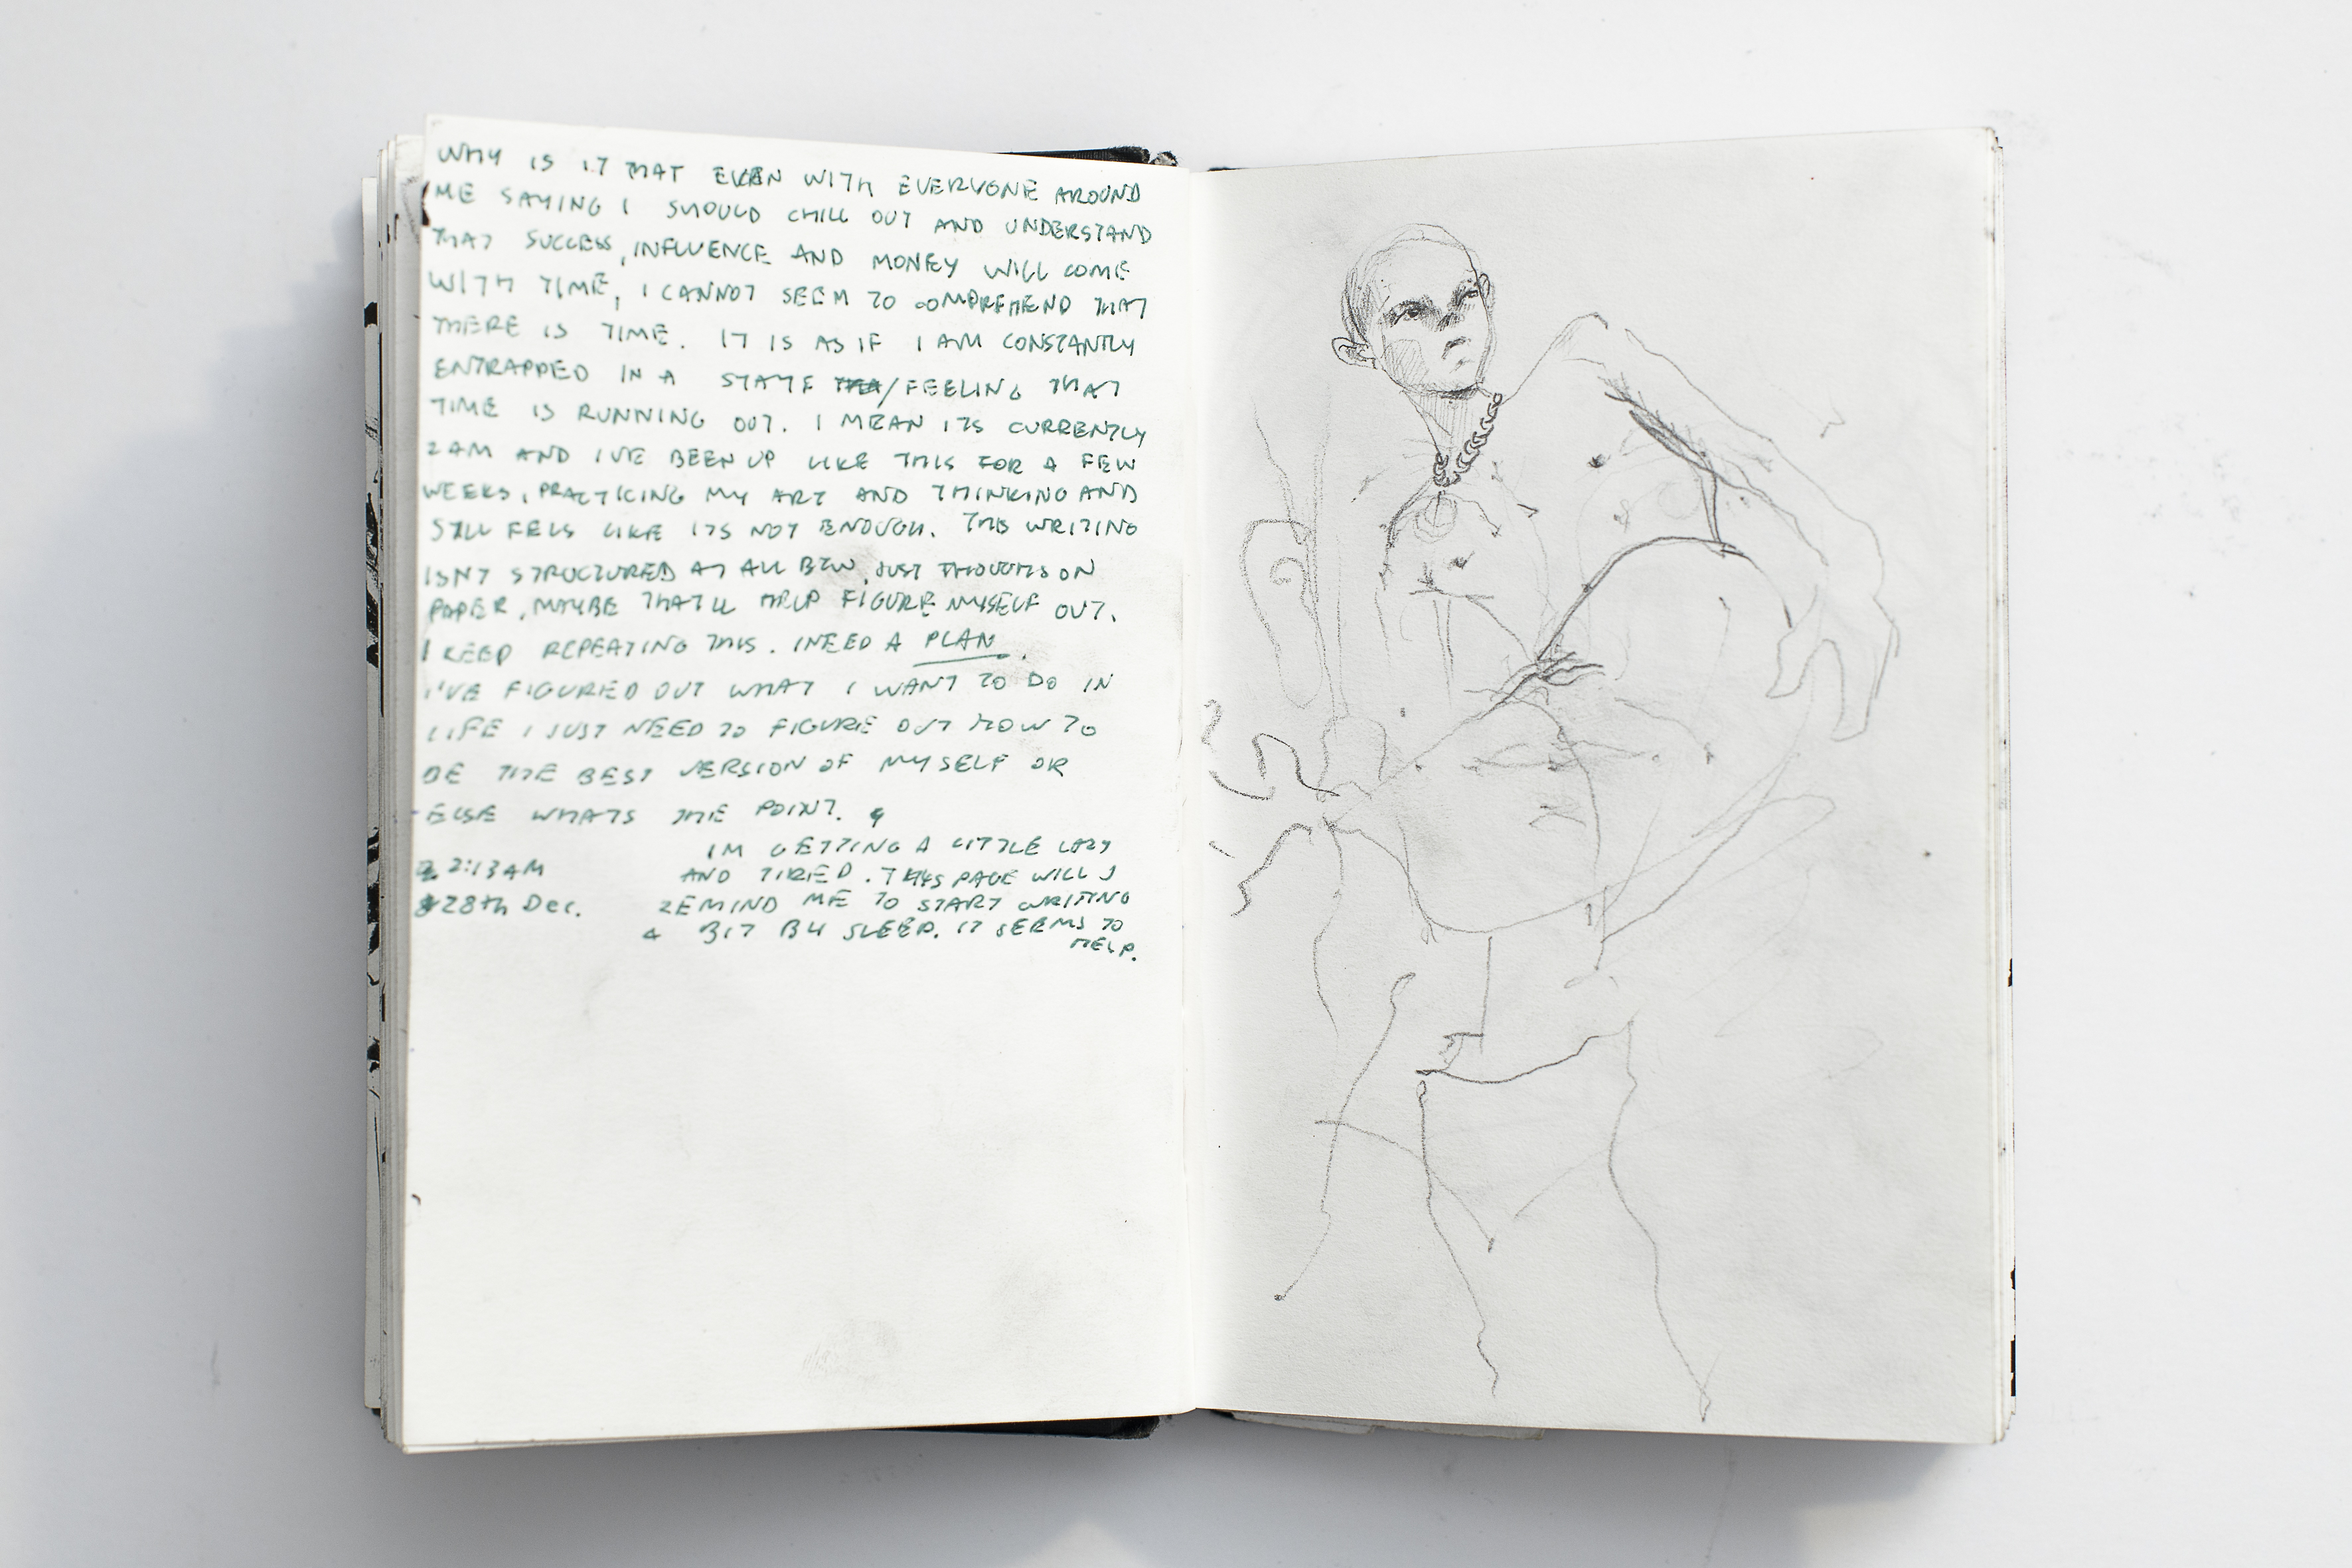 WHY IS IT THAT EVEN WITH EVERYONE AROUND
ME SAYING I SHOULD CHILL OUT AND UNDERSTAND
THAT SUCCESS, INFLUENCE AND MONEY WILL COME
WITH TIME, I CANNOT SEEM TO COMPREHEND THAT
THERE IS TIME. IT IS AS IF I AM CONSTANTLY
ENTRAPPED IN A STATE /FEELING THAT
TIME IS RUNNING OUT. I MEAN ITS CURRENTLY
2AM AND I'VE BEEN UP LIKE THIS FOR A FEW
WEEKS, PRACTICING MY ART AND THINKING AND
STILL FEELS LIKE ITS NOT ENOUGH. THIS WRITING
ISNT STRUCTURED AT ALL BTW, JUST THOUGHTS ON
PAPER, MAYBE THAT'LL HELP FIGURE MYSELF OUT.
I KEEP REPEATING THIS. I NEED A PLAN.
I'VE FIGURED OUT WHAT I WANT TO DO IN
LIFE I JUST NEED TO FIGURE OUT HOW TO
BE THE BEST VERSION OF MYSELF OR
ELSE WHATS THE POINT.
IM GETTING A LITTLE LAZY
AND TIRED. THIS PAGE WILL
REMIND ME TO START WRITING
A BIT B4 SLEEP. IT SEEMS TO
HELP.
2:13AM
28th Dec.